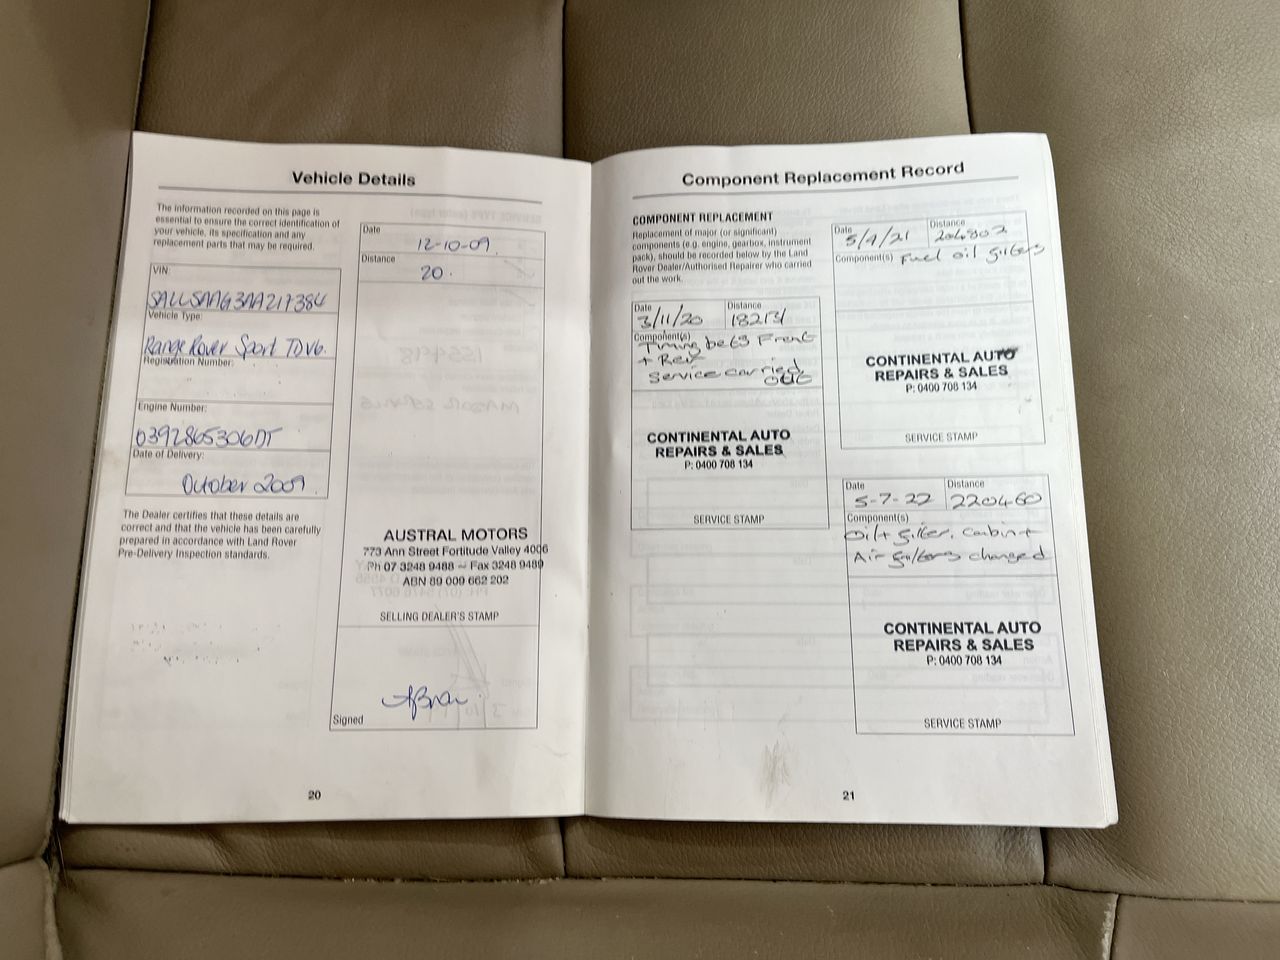 Vehicle Details
The information recorded on this page is
essential to ensure the correct identification of
your vehicle, its specification and any
replacement parts that may be required.
VIN:
SALLSAAG3AA217384
Vehicle Type:
Range Rover Sport TDV6.
Registration Number:
Engine Number:
0392865306DT
Date of Delivery:
October 2009.
The Dealer certifies that these details are
correct and that the vehicle has been carefully
prepared in accordance with Land Rover
Pre-Delivery Inspection standards.
Date
12-10-09.
Distance
20.
AUSTRAL MOTORS
773 Ann Street Fortitude Valley 4006
Ph 07 3248 9488 ~ Fax 3248 9489
ABN 89 009 662 202
SELLING DEALER'S STAMP
Signed
20
Component Replacement Record
COMPONENT REPLACEMENT
Replacement of major (or significant)
components (e.g. engine, gearbox, instrument
pack), should be recorded below by the Land
Rover Dealer/Authorised Repairer who carried
out the work.
Date
3/11/20
Distance
Component(s)
Timing belts Front
+ Rear
Service carried
out
CONTINENTAL AUTO
REPAIRS & SALES
P: 0400 708 134
SERVICE STAMP
Date
Distance
204802
Component(s) Fuel oil filters
CONTINENTAL AUTO
REPAIRS & SALES
P: 0400 708 134
SERVICE STAMP
Date
5-7-22
Distance
220460
Component(s)
Oil + filter. Cabin +
Air filters changed
CONTINENTAL AUTO
REPAIRS & SALES
P: 0400 708 134
SERVICE STAMP
21